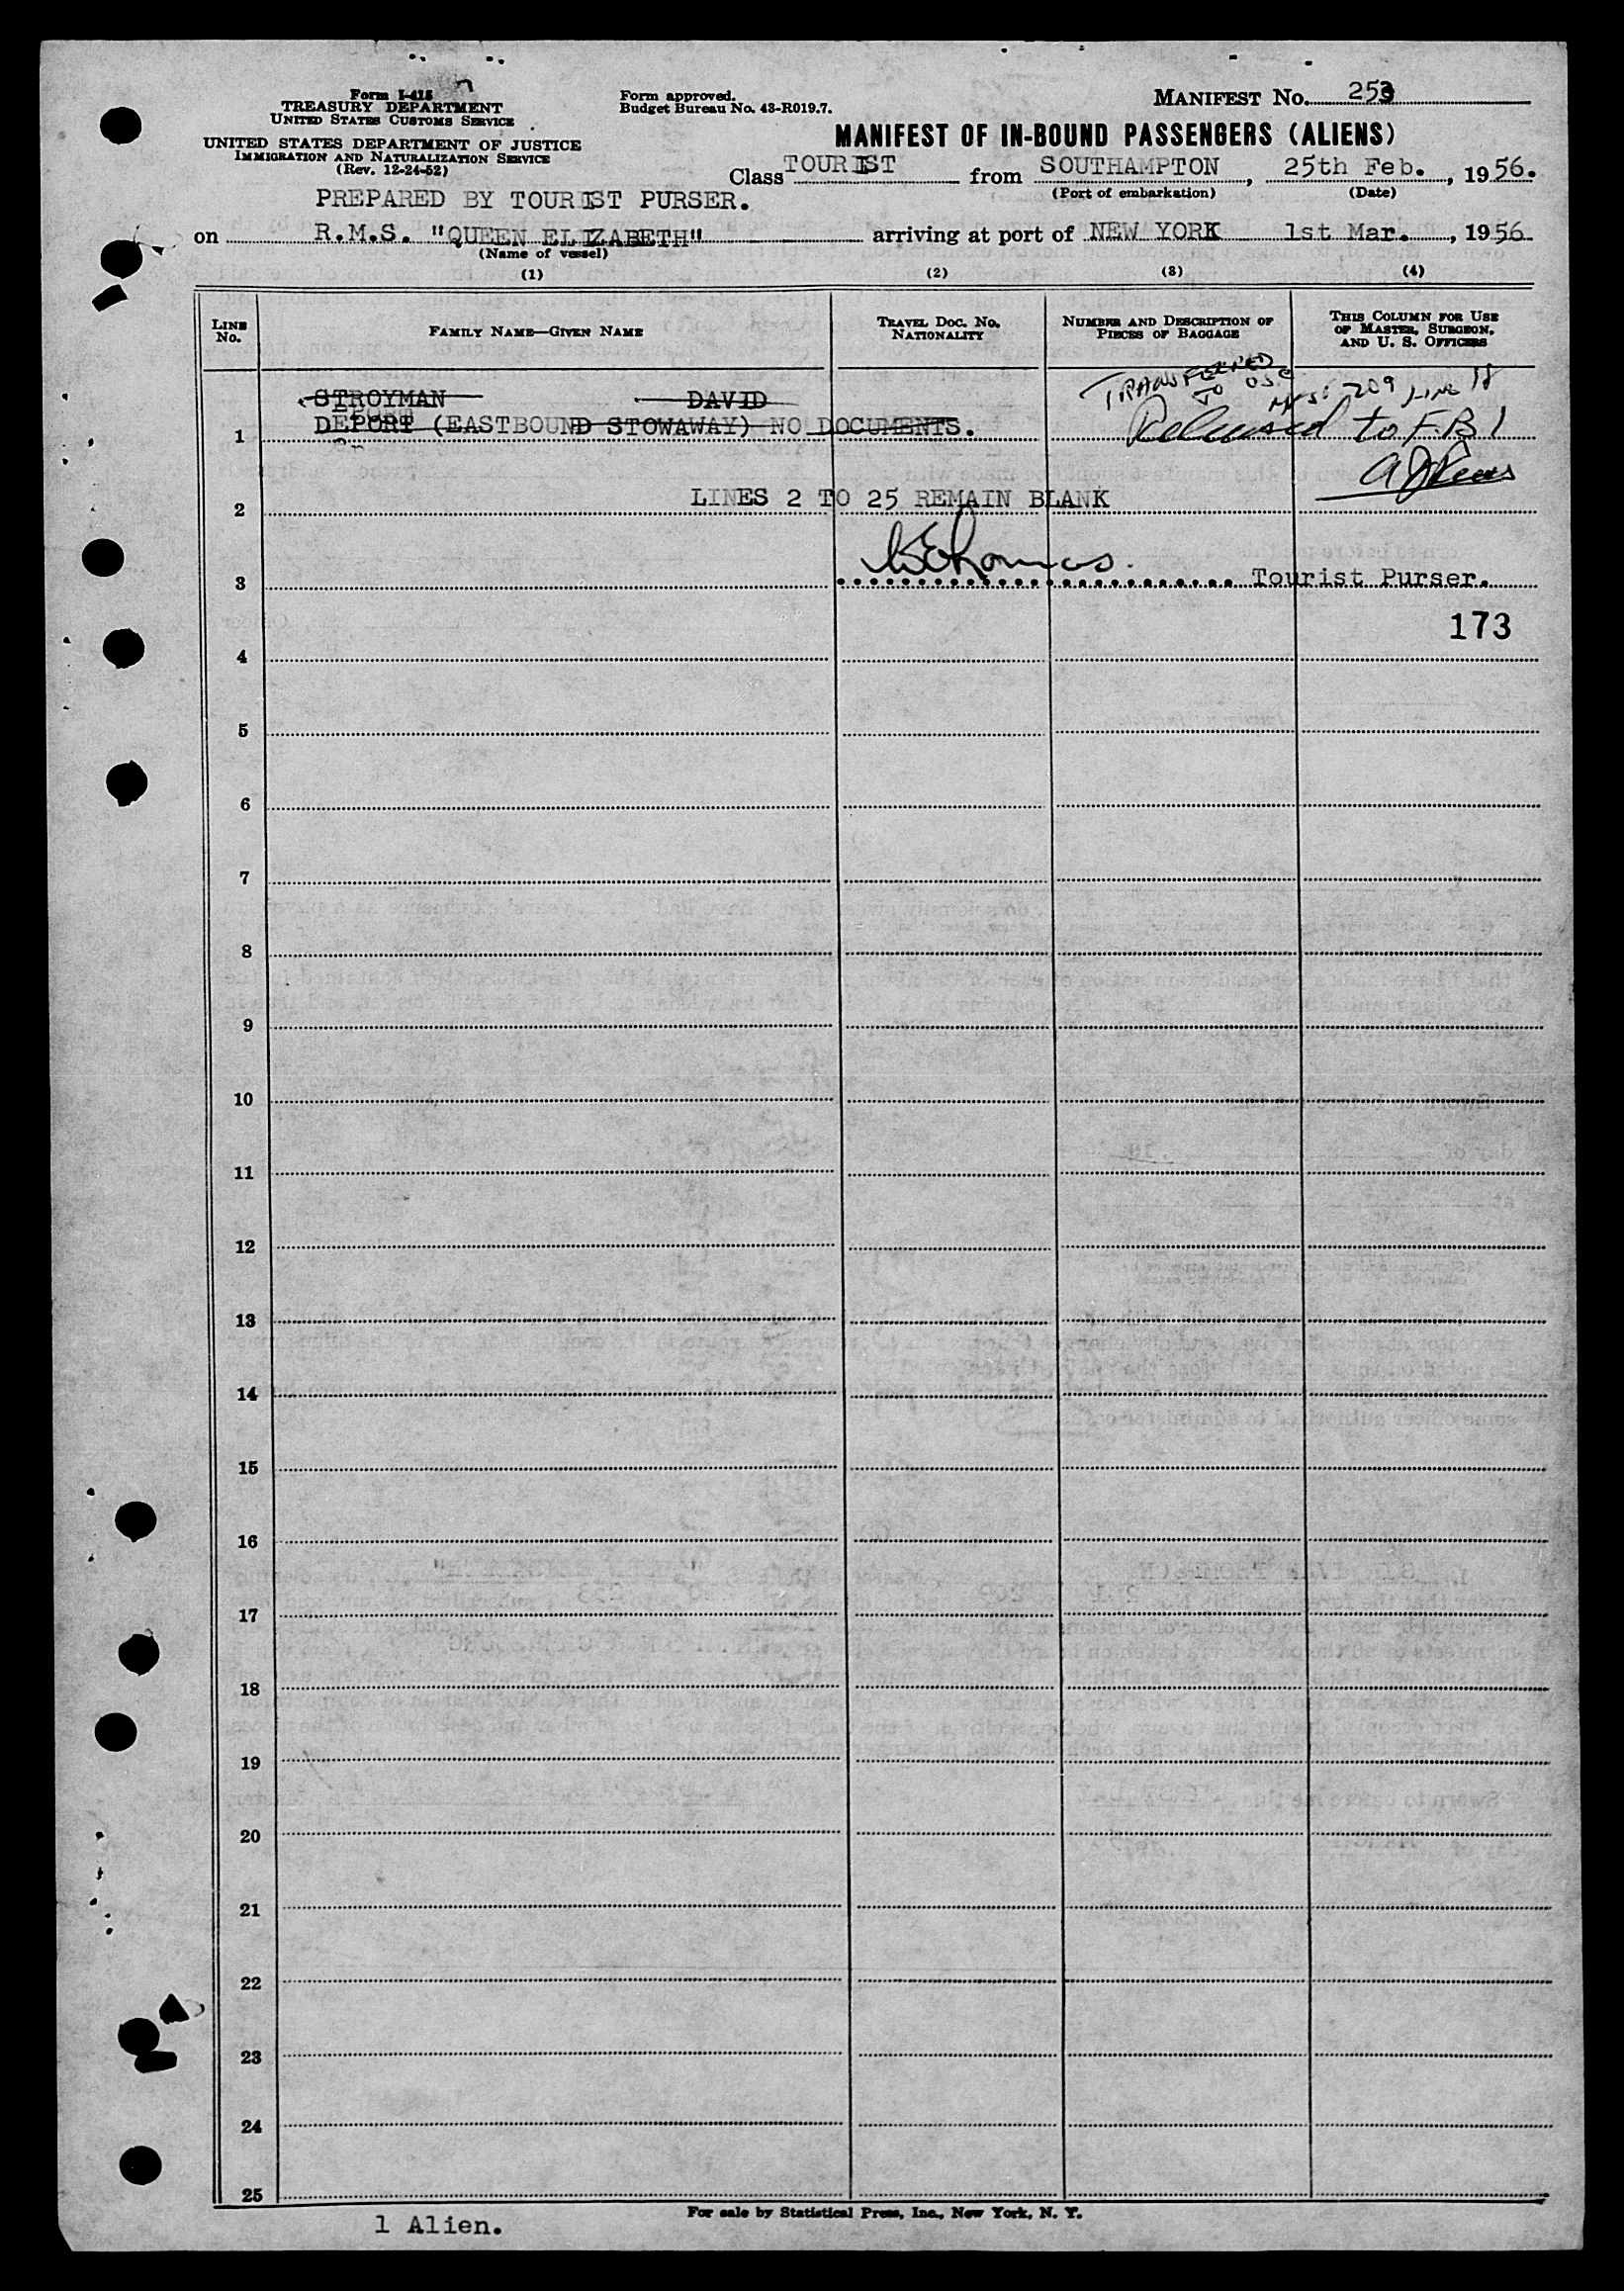 Form I-415
TREASURY DEPARTMENT
UNITED STATES CUSTOMS SERVICE
UNITED STATES DEPARTMENT OF JUSTICE
IMMIGRATION AND NATURALIZATION SERVICE
(Rev. 12-24-52)
Form approved.
Budget Bureau No. 43-R019.7.
MANIFEST No. 253
MANIFEST OF IN-BOUND PASSENGERS (ALIENS)
Class TOURIST from SOUTHAMPTON, 25th Feb., 1956.
(Port of embarkation) (Date)
PREPARED BY TOURIST PURSER.
on R.M.S. "QUEEN ELIZABETH" arriving at port of NEW YORK 1st Mar., 1956
(Name of vessel)
(1) (2) (3) (4)
LINE No. FAMILY NAME—GIVEN NAME TRAVEL DOC. No. NATIONALITY NUMBER AND DESCRIPTION OF PIECES OF BAGGAGE THIS COLUMN FOR USE OF MASTER, SURGEON, AND U. S. OFFICERS
TRANSFERRED TO USC 209 LINE 18
STROYMAN DAVID
1 DEPORT (EASTBOUND STOWAWAY) NO DOCUMENTS. Released to F.B.I
2 LINES 2 TO 25 REMAIN BLANK
3 Tourist Purser.
173
4
5
6
7
8
9
10
11
12
13
14
15
16
17
18
19
20
21
22
23
24
25
For sale by Statistical Press, Inc., New York, N. Y.
1 Alien.